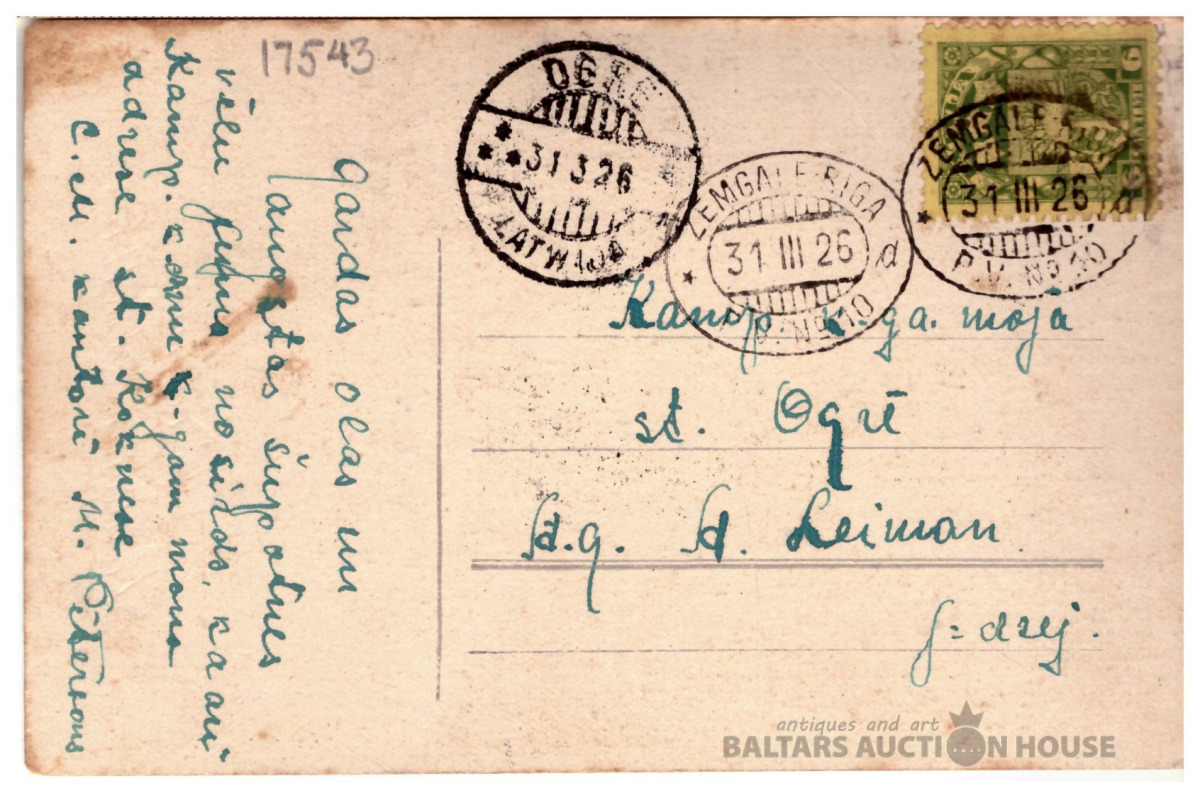 17543
Gardas olas un
augstas šūpotnes
vēlu
no sirds, kā arī
Kamp. k-gam mana
adrese st. Koknese
M. Pētersons
OGRE
31 3 26
LATWIJA
ZEMGALE-RIGA
31 III 26
d
P.V. No 10
ZEMGALE
31 III 26
d
P.V. No 10
Kamp. k-ga. māja
st. Ogrē
A.g. A. Leiman
dzej.
antiques and art
BALTARS AUCTION HOUSE